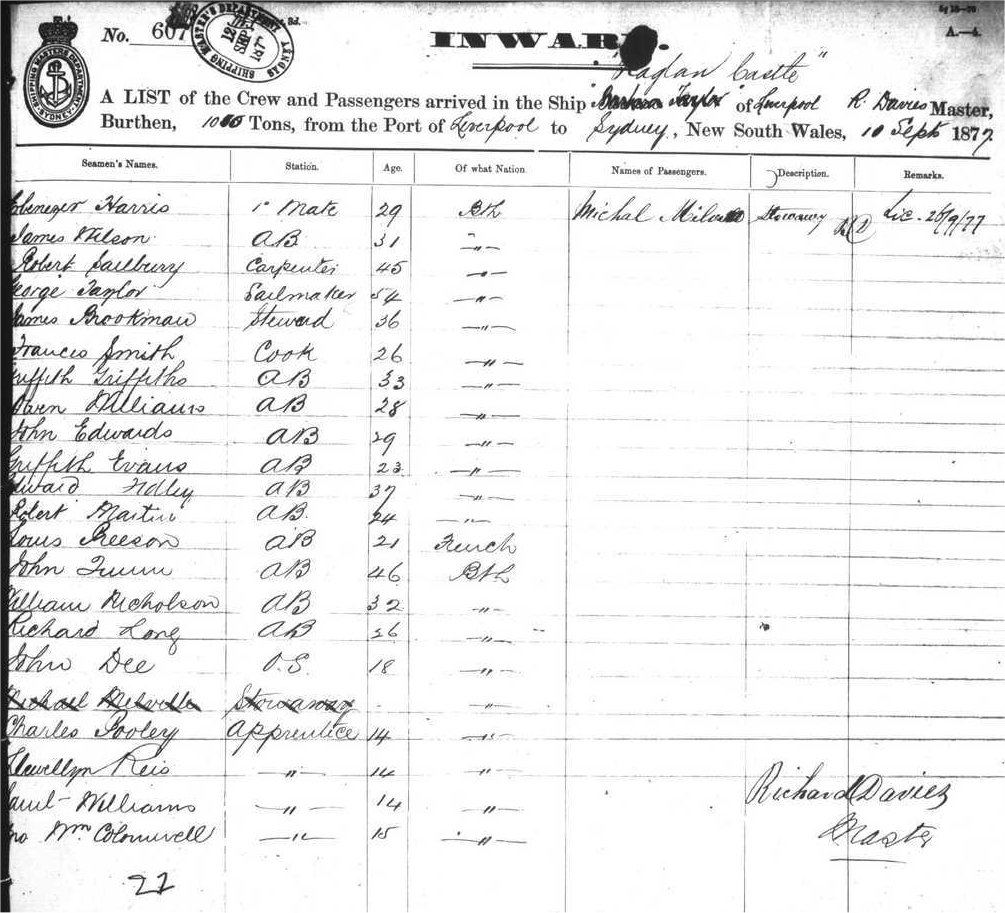 No. 607
SHIPPING MASTER'S DEPARTMENT SYDNEY
12 SEP 1877
SHIPPING MASTERS DEPARTMENT SYDNEY
A.—4.
INWARD.
"Raglan Castle"
A LIST of the Crew and Passengers arrived in the Ship Barbara Taylor of Liverpool R. Davies Master,
Burthen, Tons, from the Port of Liverpool to Sydney, New South Wales, 10 Sept 1877.
Seamen's Names. Station. Age. Of what Nation. Names of Passengers. Description. Remarks.
Ebenezer Harris 1st Mate 29 Bth Michal Stowaway Lic. 26/9/77
James Wilson AB 31 —"—
Robert Carpenter 45 —"—
George Taylor Sailmaker 54 —"—
James Brookman Steward 36 —"—
Frances Smith Cook 26 —"—
Griffith Griffiths AB 33 —"—
Owen Williams AB 28 —"—
John Edwards AB 29 —"—
Griffith Evans AB 23 —"—
Edward AB 37 —"—
Robert Martin AB 24 —"—
Louis AB 21 French
John Quinn AB 46 Bth
William Nicholson AB 32 —"—
Richard Long AB 26 —"—
John Dee O.S. 18 —"—
Michael Melville Stowaway —"—
Charles Pooley Apprentice 14 —"—
Llewellyn Reis —"— 14 —"—
Saml Williams —"— 14 —"—
Jno Wm —"— 15 —"—
Richard Davies
Master
22